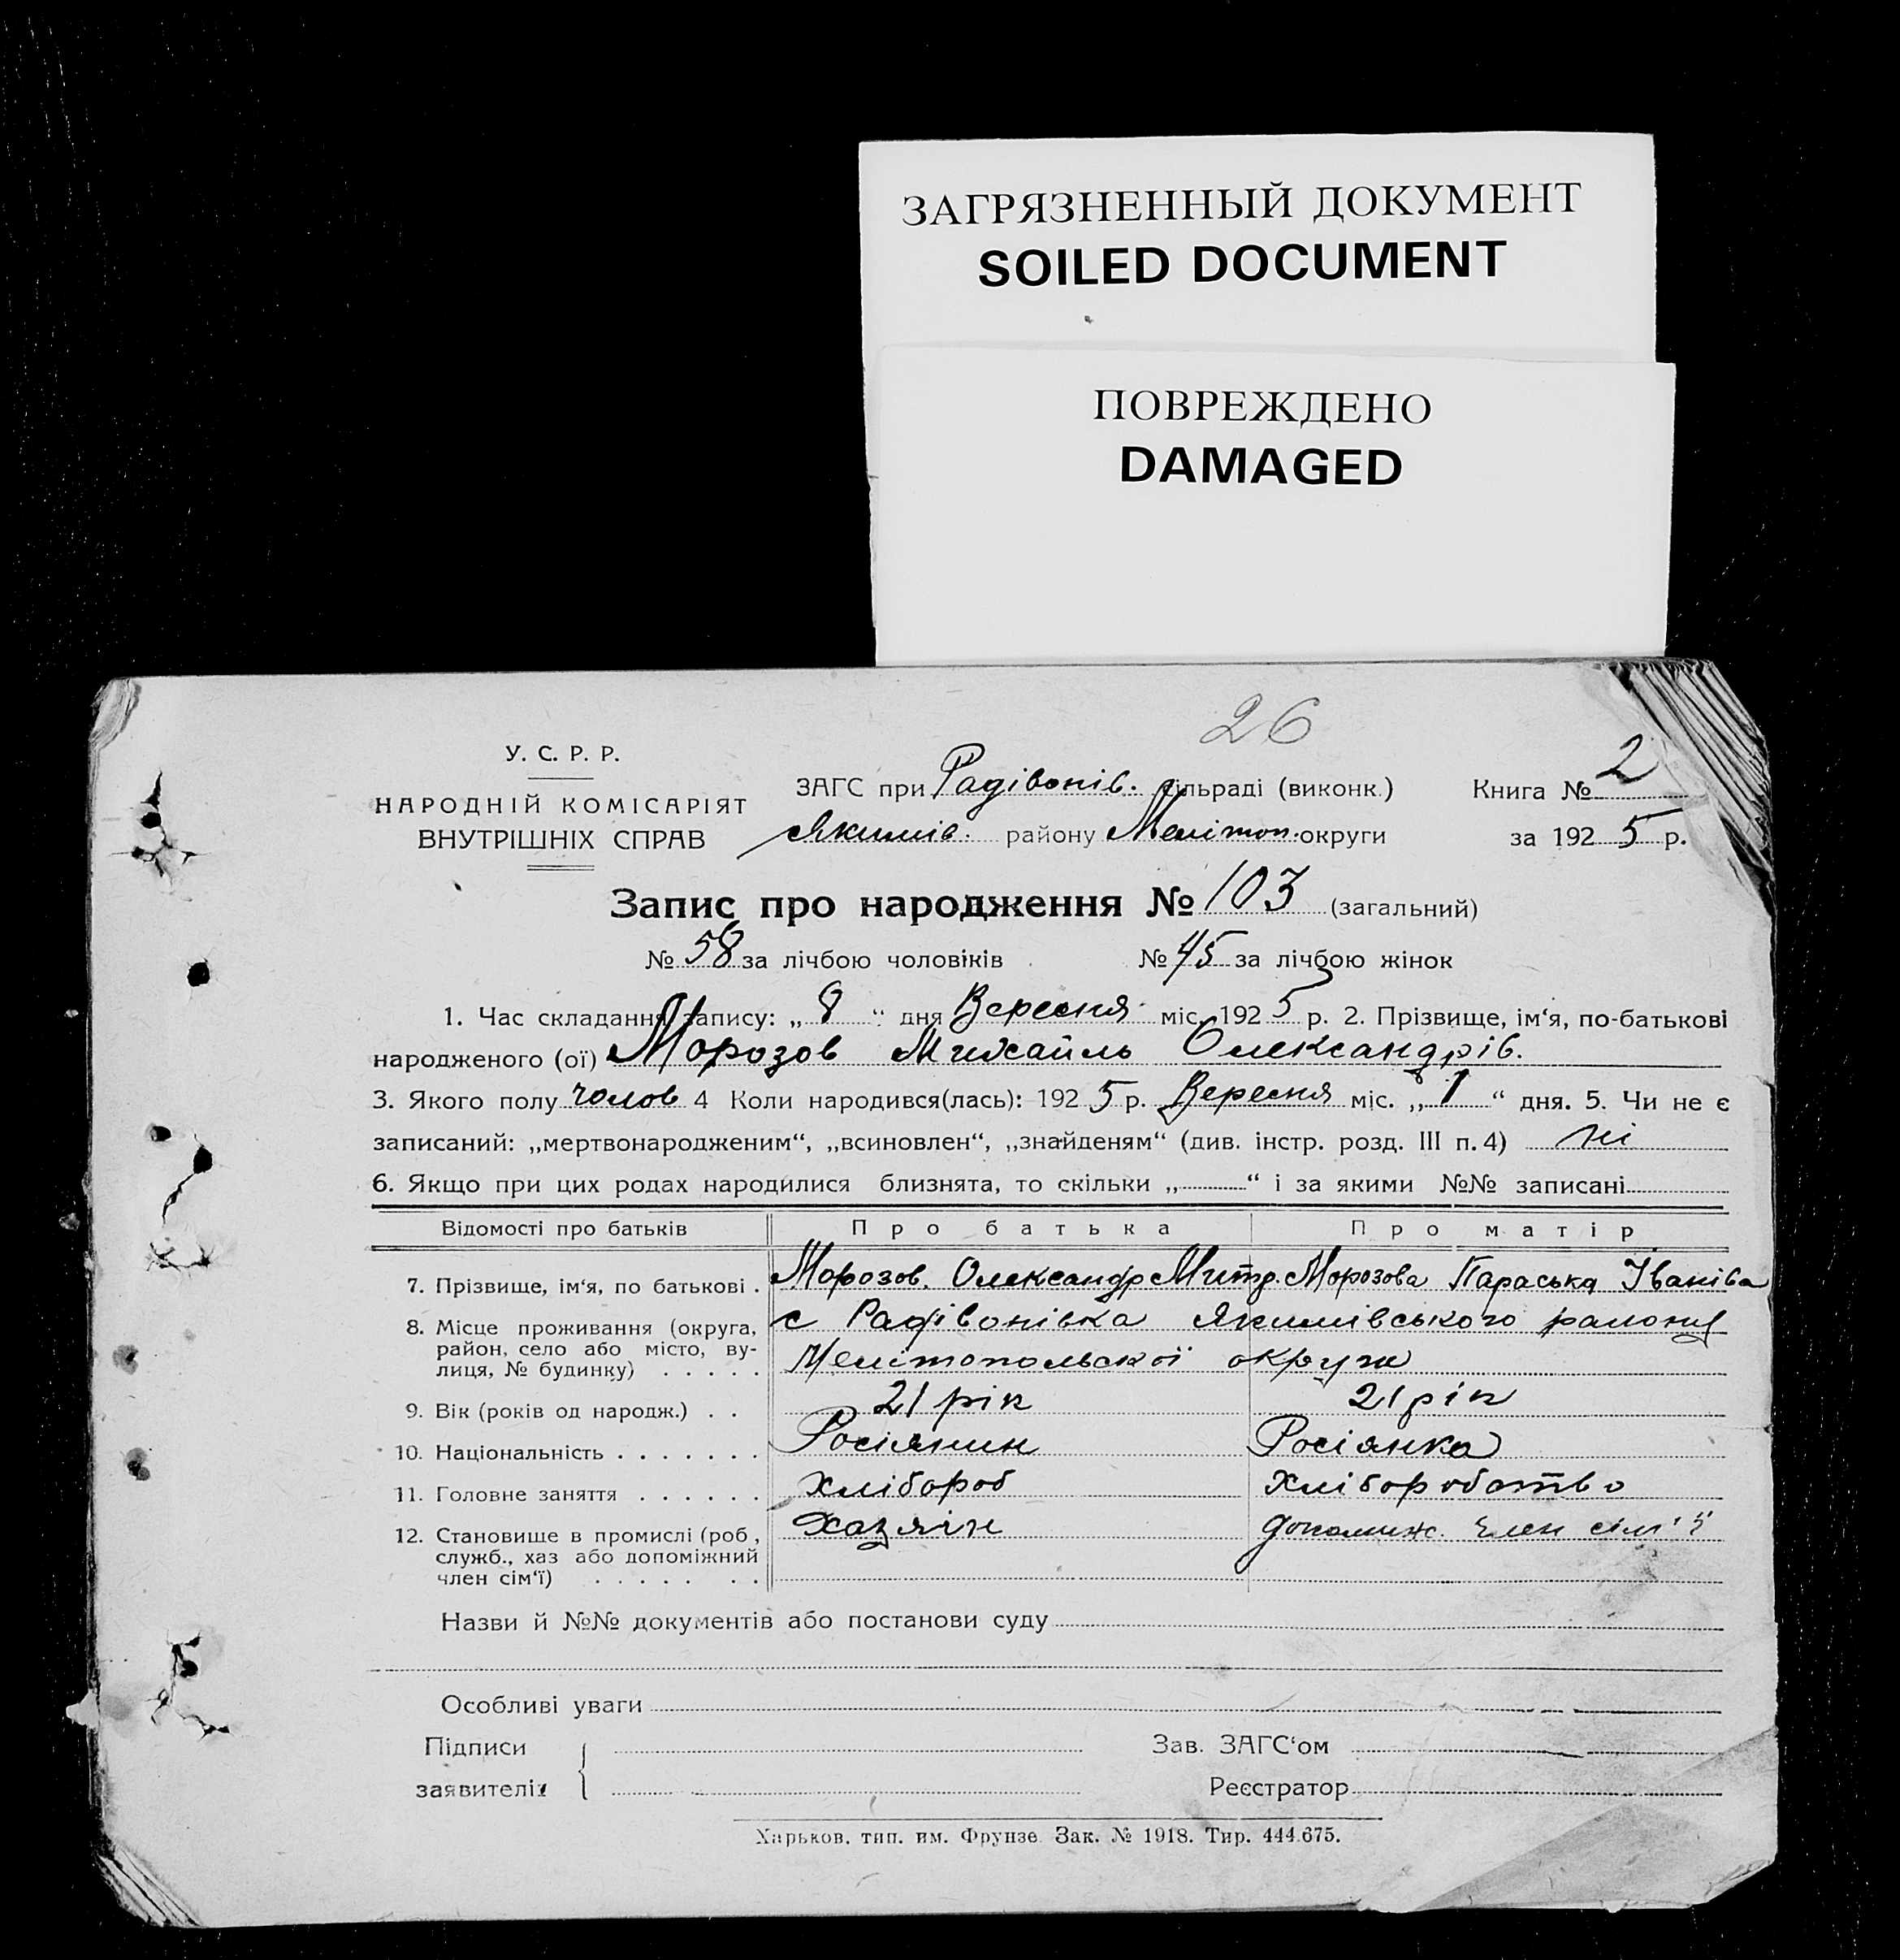 ЗАГРЯЗНЕННЫЙ ДОКУМЕНТ
SOILED DOCUMENT
ПОВРЕЖДЕНО
DAMAGED
26
У. С. Р. Р.
НАРОДНІЙ КОМІСАРІЯТ
ВНУТРІШНІХ СПРАВ
ЗАГС при Радівонів. сільраді (виконк.)
Якимів. району Меліт‌оп. округи
Книга № 2
за 1925 р.
Запис про народження № 103 (загальний)
№ 58 за лічбою чоловіків № 45 за лічбою жінок
1. Час складання запису: „ 8 “ дня Вересня міс. 1925 р. 2. Прізвище, ім‘я, по-батькові
народженого (ої) Морозов Михайль Олександрів.
3. Якого полу чолов 4 Коли народився(лась): 1925 р. Вересня міс. „ 1 “ дня. 5. Чи не є
записаний: „мертвонародженим“, „всиновлен“, „знайденям“ (див. інстр. розд. III п. 4) ні
6. Якщо при цих родах народилися близнята, то скільки „ “ і за якими №№ записані
Відомості про батьків Про батька Про матір
7. Прізвище, ім‘я, по батькові . Морозов. Олександр Митр. Морозова Параська Іванівa
8. Місце проживання (округа, район, село або місто, вулиця, № будинку) . . . . . с Радівонівка Якимівського района
Мелітопольської округи
9. Вік (років од народж.) . . 21 рік 21 рік
10. Національність . . . . . . . Росіянин Росіянка
11. Головне заняття . . . . . . Хлібороб Хліборобство
12. Становище в промислі (роб, служб., хаз або допоміжний член сім‘ї) . . . . . . . Хазяїн допоміж. член сім'ї
Назви й №№ документів або постанови суду
Особливі уваги
Підписи
заявителів
Зав. ЗАГС‘ом
Реєстратор
Харьков. тип. им. Фрунзе Зак. № 1918. Тир. 444.675.